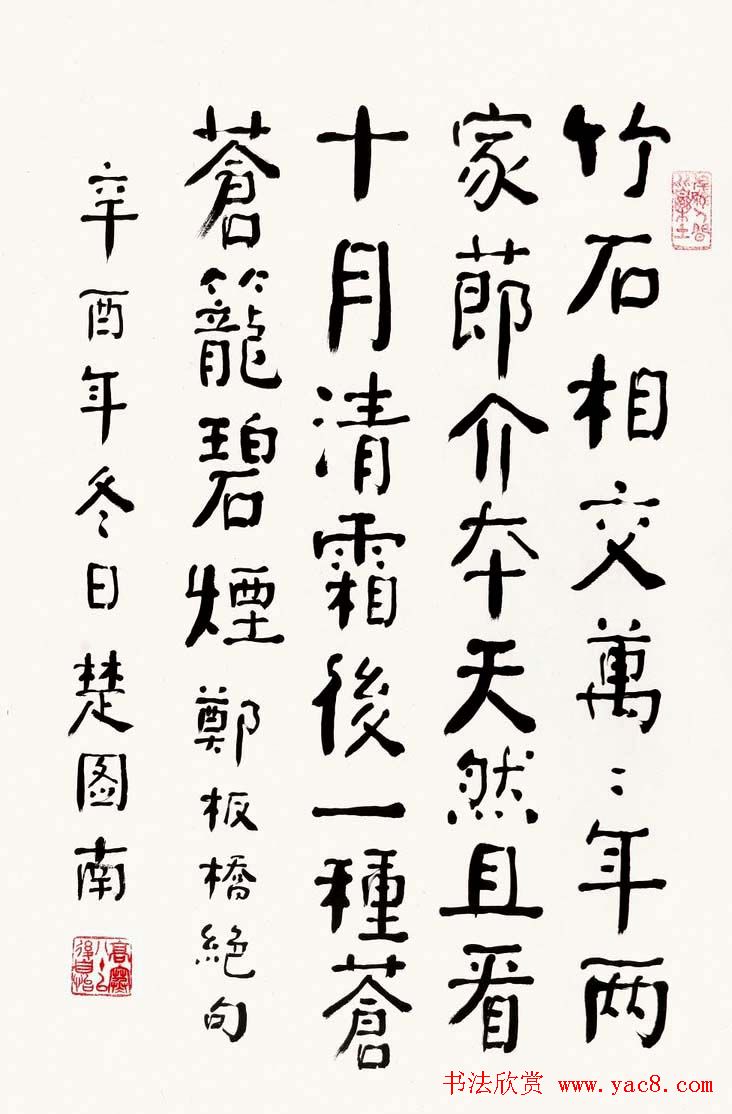 竹石相交萬〻年两
家莭介夲天然且看
十月清霜後一種蒼
蒼籠碧煙 鄭板橋絶句
辛酉年冬日楚图南
书法欣赏 www.yac8.com